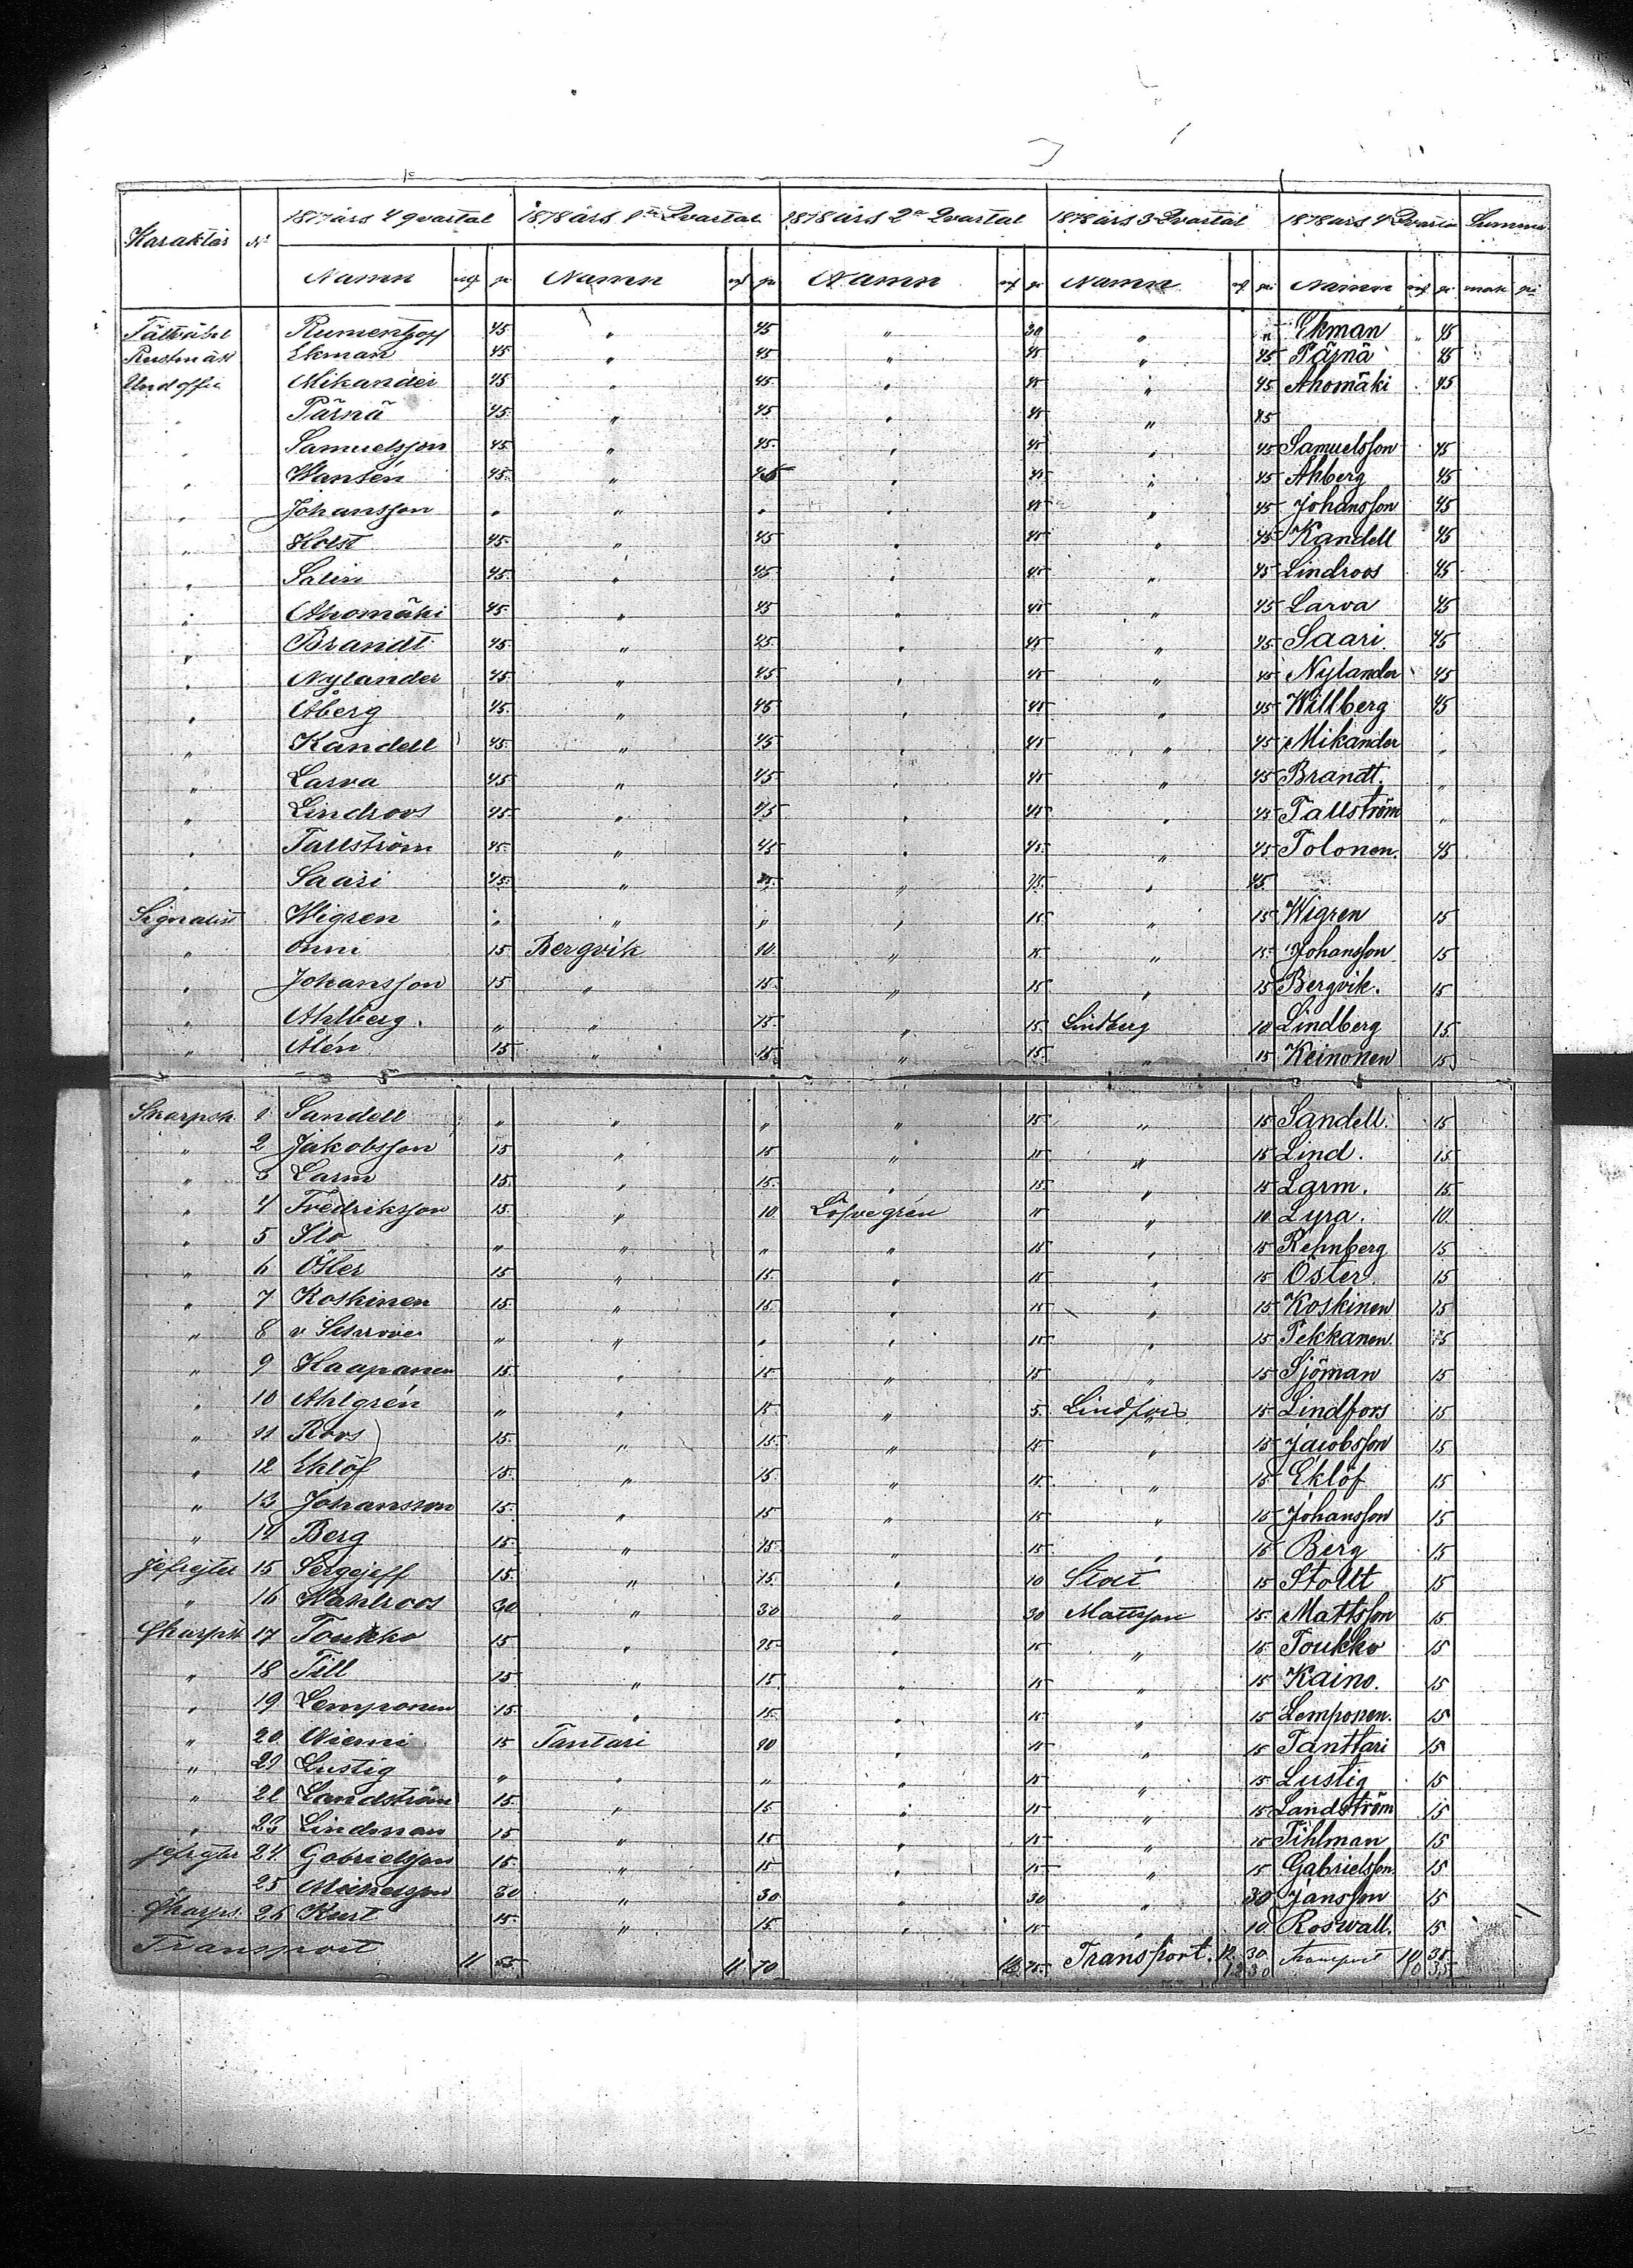 Karaktär No 1877 års 4 qvartal 1878 års 1sta Qvartal 1878 års 2a Qvartal 1878 års 3 Qvartal 1878 års 4 Qvartal Summa
Namn Namn Namn Namn Namn
45 " 45 " 20 " " Ekman " 45
Ekman 45 " 45 " 45 " 45 Pärnä 45
Undoffic Mikander 45 " 45 " 45 " 45 Ahomäki 45
" Pärnä 45 " 45 " 45 " 45
" Samuelsson 45 " 45 " 45 " 45 Samuelsson 45
" Wansén 45 " 45 " 45 " 45 Ahberg 45
" Johansson " " " 45 " 45 Johansson 45
" Holst 45 " 45 " 45 " 45 Kandell 45
" Salin 45 " 45 " 45 " 45 Lindroos 45
" Ahomäki 45 " 45 " 45 " 45 Larva 45
" Brandt 45 " 45 " 45 " 45 Saari 45
" Nylander 45 " 45 " 45 " 45 Nylander 45
" Åberg 45 " 45 " 45 " 45 Willberg 45
" Kandell 45 " 45 " 45 " 45 Mikander "
" Larva 45 " 45 " 45 " 45 Brandt "
" Lindroos 45 " 45 " 45 " 45 Tallström "
" Tallström 45 " 45 " 45 " 45 Tolonen 45
" Saari 45 " 45 " 45 " 45
Signalist Wigren " " " " 15 " 15 Wigren 15
" Onni 15 Bergvik 10 " 15 " 15 Johansson 15
" Johansson 15 " 15 " 15 " 15 Bergvik. 15
" Ahlberg " " 15 " 15 Lindberg 10 Lindberg 15
" Alén 15 " 15 " 15 " 15 Keinonen 15
Skarpsk. 1 Sandell " " " " 15 " 15 Sandell. 15
" 2 Jakobsson 15 " 15 " 15 " 15 Lind. 15
" 3 Larm 15 " 15 " 15 " 15 Larm. 15
" 4 Fredriksson 15 " 10 Löfvegrén 15 " 10 Lyra. 10
" 5 Ilo " " " " 15 " 15 Rehnberg 15
" 6 Öster 15 " 15 " 15 " 15 Öster. 15
" 7 Koskinen 15 " 15 " 15 " 15 Koskinen 15
" 8 " " " " 15 " 15 Pekkanen. 15
" 9 Haapanen 15 " 15 " 15 " 15 Sjöman 15
" 10 Ahlgrén " " 15 " 5 Lindfors 15 Lindfors 15
" 11 Roos 15 " 15 " 15 " 15 Jacobsson 15
" 12 Eklöf 15 " 15 " 15 " 15 Eklöf 15
" 13 Johansson 15 " 15 " 15 " 15 Johansson 15
" 14 Berg 15 " 15 " 15 " 15 Berg 15
Jefrejter 15 Sergejeff 15 " 15 " 10 Stolt 15 Stollt 15
" 16 Wahlroos 30 " 30 " 30 Mattsson 15 Mattsson 15
Skarpsk 17 Toukko 15 " 15 " 15 " 15 Toukko 15
" 18 Till 15 " 15 " 15 " 15 Kaino. 15
" 19 Lemponen 15 " 15 " 15 " 15 Lemponen. 15
" 20 Niemi 15 Tantari 10 " 15 " 15 Tanttari 15
" 21 Lustig " " " " 15 " 15 Lustig 15
" 22 Landström 15 " 15 " 15 " 15 Landström 15
" 23 Lindman 15 " 15 " 15 " 15 Tihlman 15
Jefrejter 24 Gabrielsson 15 " 15 " 15 " 15 Gabrielsson 15
" 25 Mickelsson 30 " 30 " 30 " 30 Jansson 15
Skarps. 26 Kurt 15 " 15 " 15 " 10 Roswall. 15
Transport 11 55 11 70 Transport. 12 30 Transport 10 35
12 30 10 35